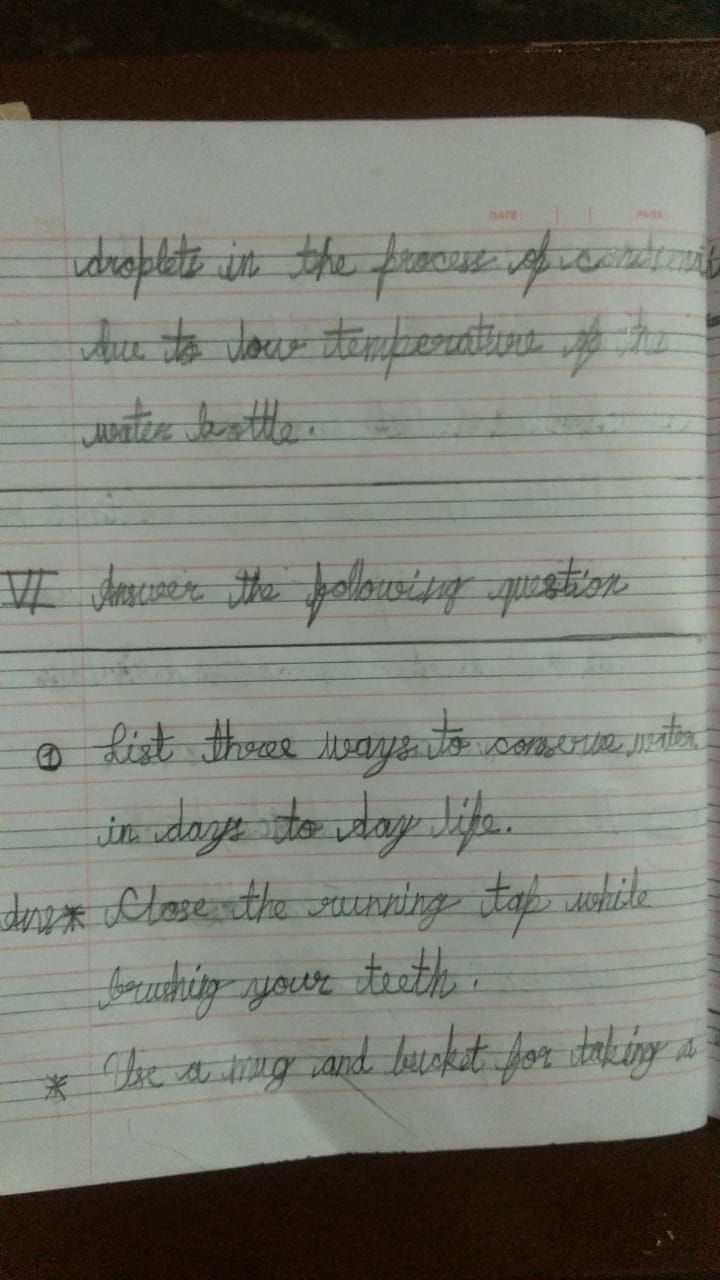 DATE PAGE
droplets in the process of
due to low temperature of the
water bottle.
VI Answer the following question
① List three ways to conserve water
in days to day life.
Ans* Close the running tap while
brushing your teeth.
* Use a mug and bucket for taking a